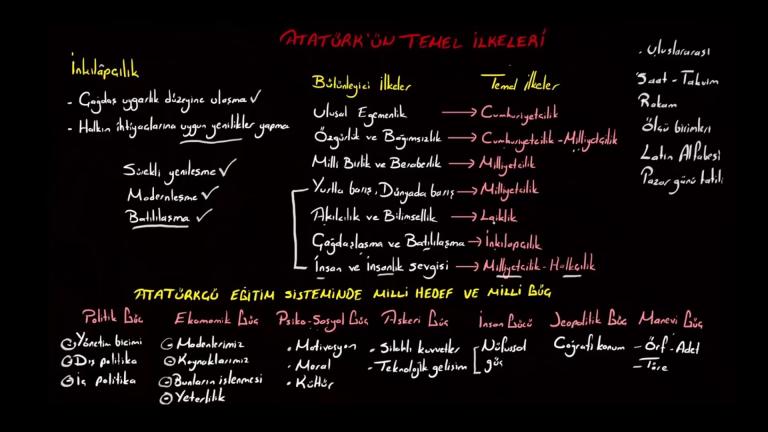 ATATÜRK'ÜN TEMEL İLKELERİ
İnkılâpçılık
- Çağdaş uygarlık düzeyine ulaşma ✓
- Halkın ihtiyaçlarına uygun yenilikler yapma
Sürekli yenileşme ✓
Modernleşme ✓
Batılılaşma ✓
Bütünleyici İlkeler Temel İlkeler
Ulusal Egemenlik → Cumhuriyetçilik
Özgürlük ve Bağımsızlık → Cumhuriyetçilik - Milliyetçilik
Milli Birlik ve Beraberlik → Milliyetçilik
Yurtta barış, Dünyada barış → Milliyetçilik
Akılcılık ve Bilimsellik → Laiklik
Çağdaşlaşma ve Batılılaşma → İnkılapçılık
İnsan ve insanlık sevgisi → Milliyetçilik - Halkçılık
. Uluslararası
Saat - Takvim
Rakam
Ölçü birimleri
Latin Alfabesi
Pazar günü tatili
ATATÜRKÇÜ EĞİTİM SİSTEMİNDE MİLLİ HEDEF VE MİLLİ GÜÇ
Politik Güç
Yönetim biçimi
Dış politika
İç politika
Ekonomik Güç
Madenlerimiz
Kaynaklarımız
Bunların işlenmesi
Yeterlilik
Psiko-Sosyal Güç
. Motivasyon
. Moral
. Kültür
Askeri Güç
- Silahlı kuvvetler
- Teknolojik gelişim
İnsan Gücü
Nüfussal
güç
Jeopolitik Güç
Coğrafi konum
Manevi Güç
- Örf - Adet
- Töre